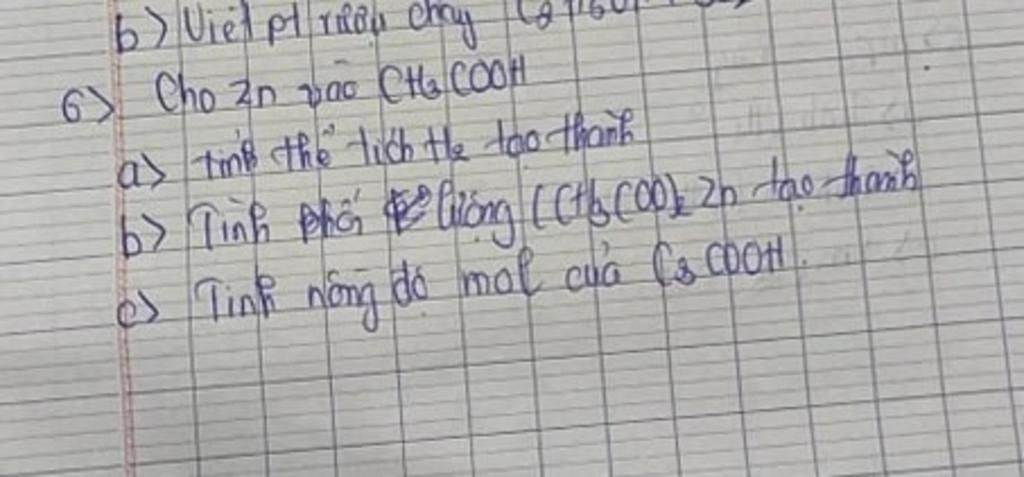 b) Viết pt rượu cháy
6) Cho Zn vào CH3COOH
a) tính thể tích H2 tạo thành
b) Tính khối lượng (CH3COO)2 Zn tạo thành
c) Tính nồng độ mol của C3COOH.